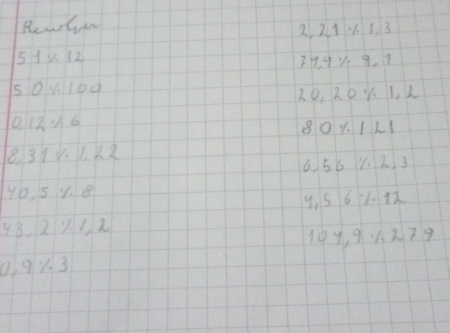 Resolver
51 % 12
50 % 100
0,12 % 6
8,31 % 1,22
40,5 % 8
43,2 % 1,2
0,9 % 3
2,21 % 1,3
20,20 % 1,2
80 % 121
6,56 % 2,3
4,56 % 12
104,9 % 279